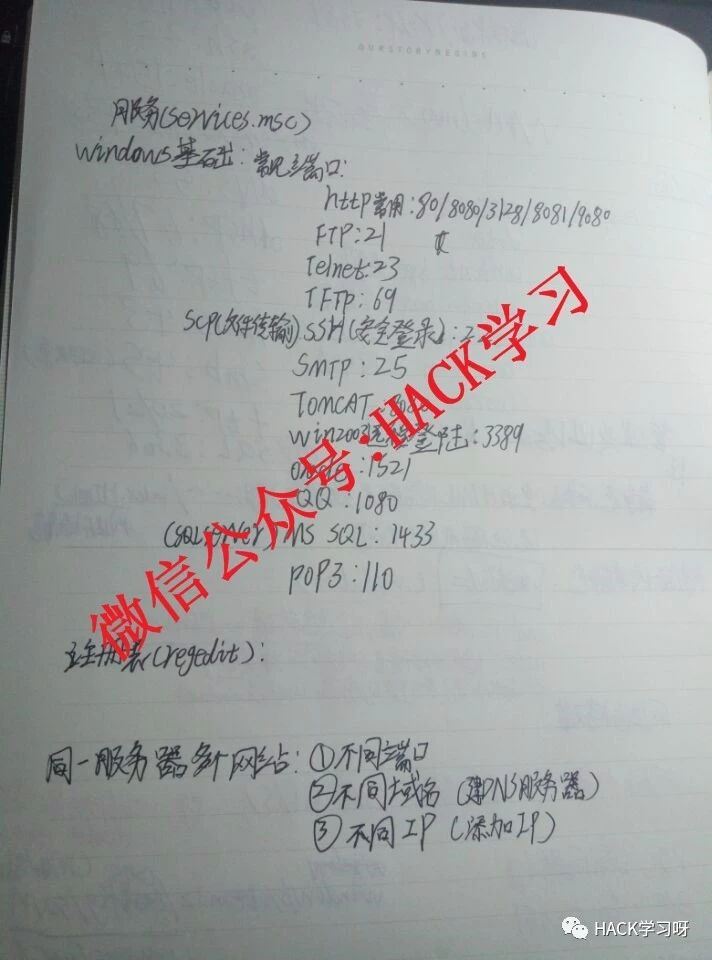 OURSTORYBEGINS
服务(services.msc)
windows基础: 常见端口:
http常用:80/8080/3128/8081/9080
FTP:21
Telnet:23
TFTP:69
SCP(文件传输).SSH(安全登录):22
SMTP:25
TOMCAT:8080
win2003远程登陆:3389
:1521
QQ:1080
(SQLserver) MS SQL:1433
POP3:110
注册表(regedit):
同一服务器多个网站:①不同端口
②不同域名(建DNS服务器)
③不同IP(添加IP)
微信公众号:HACK学习
HACK学习呀